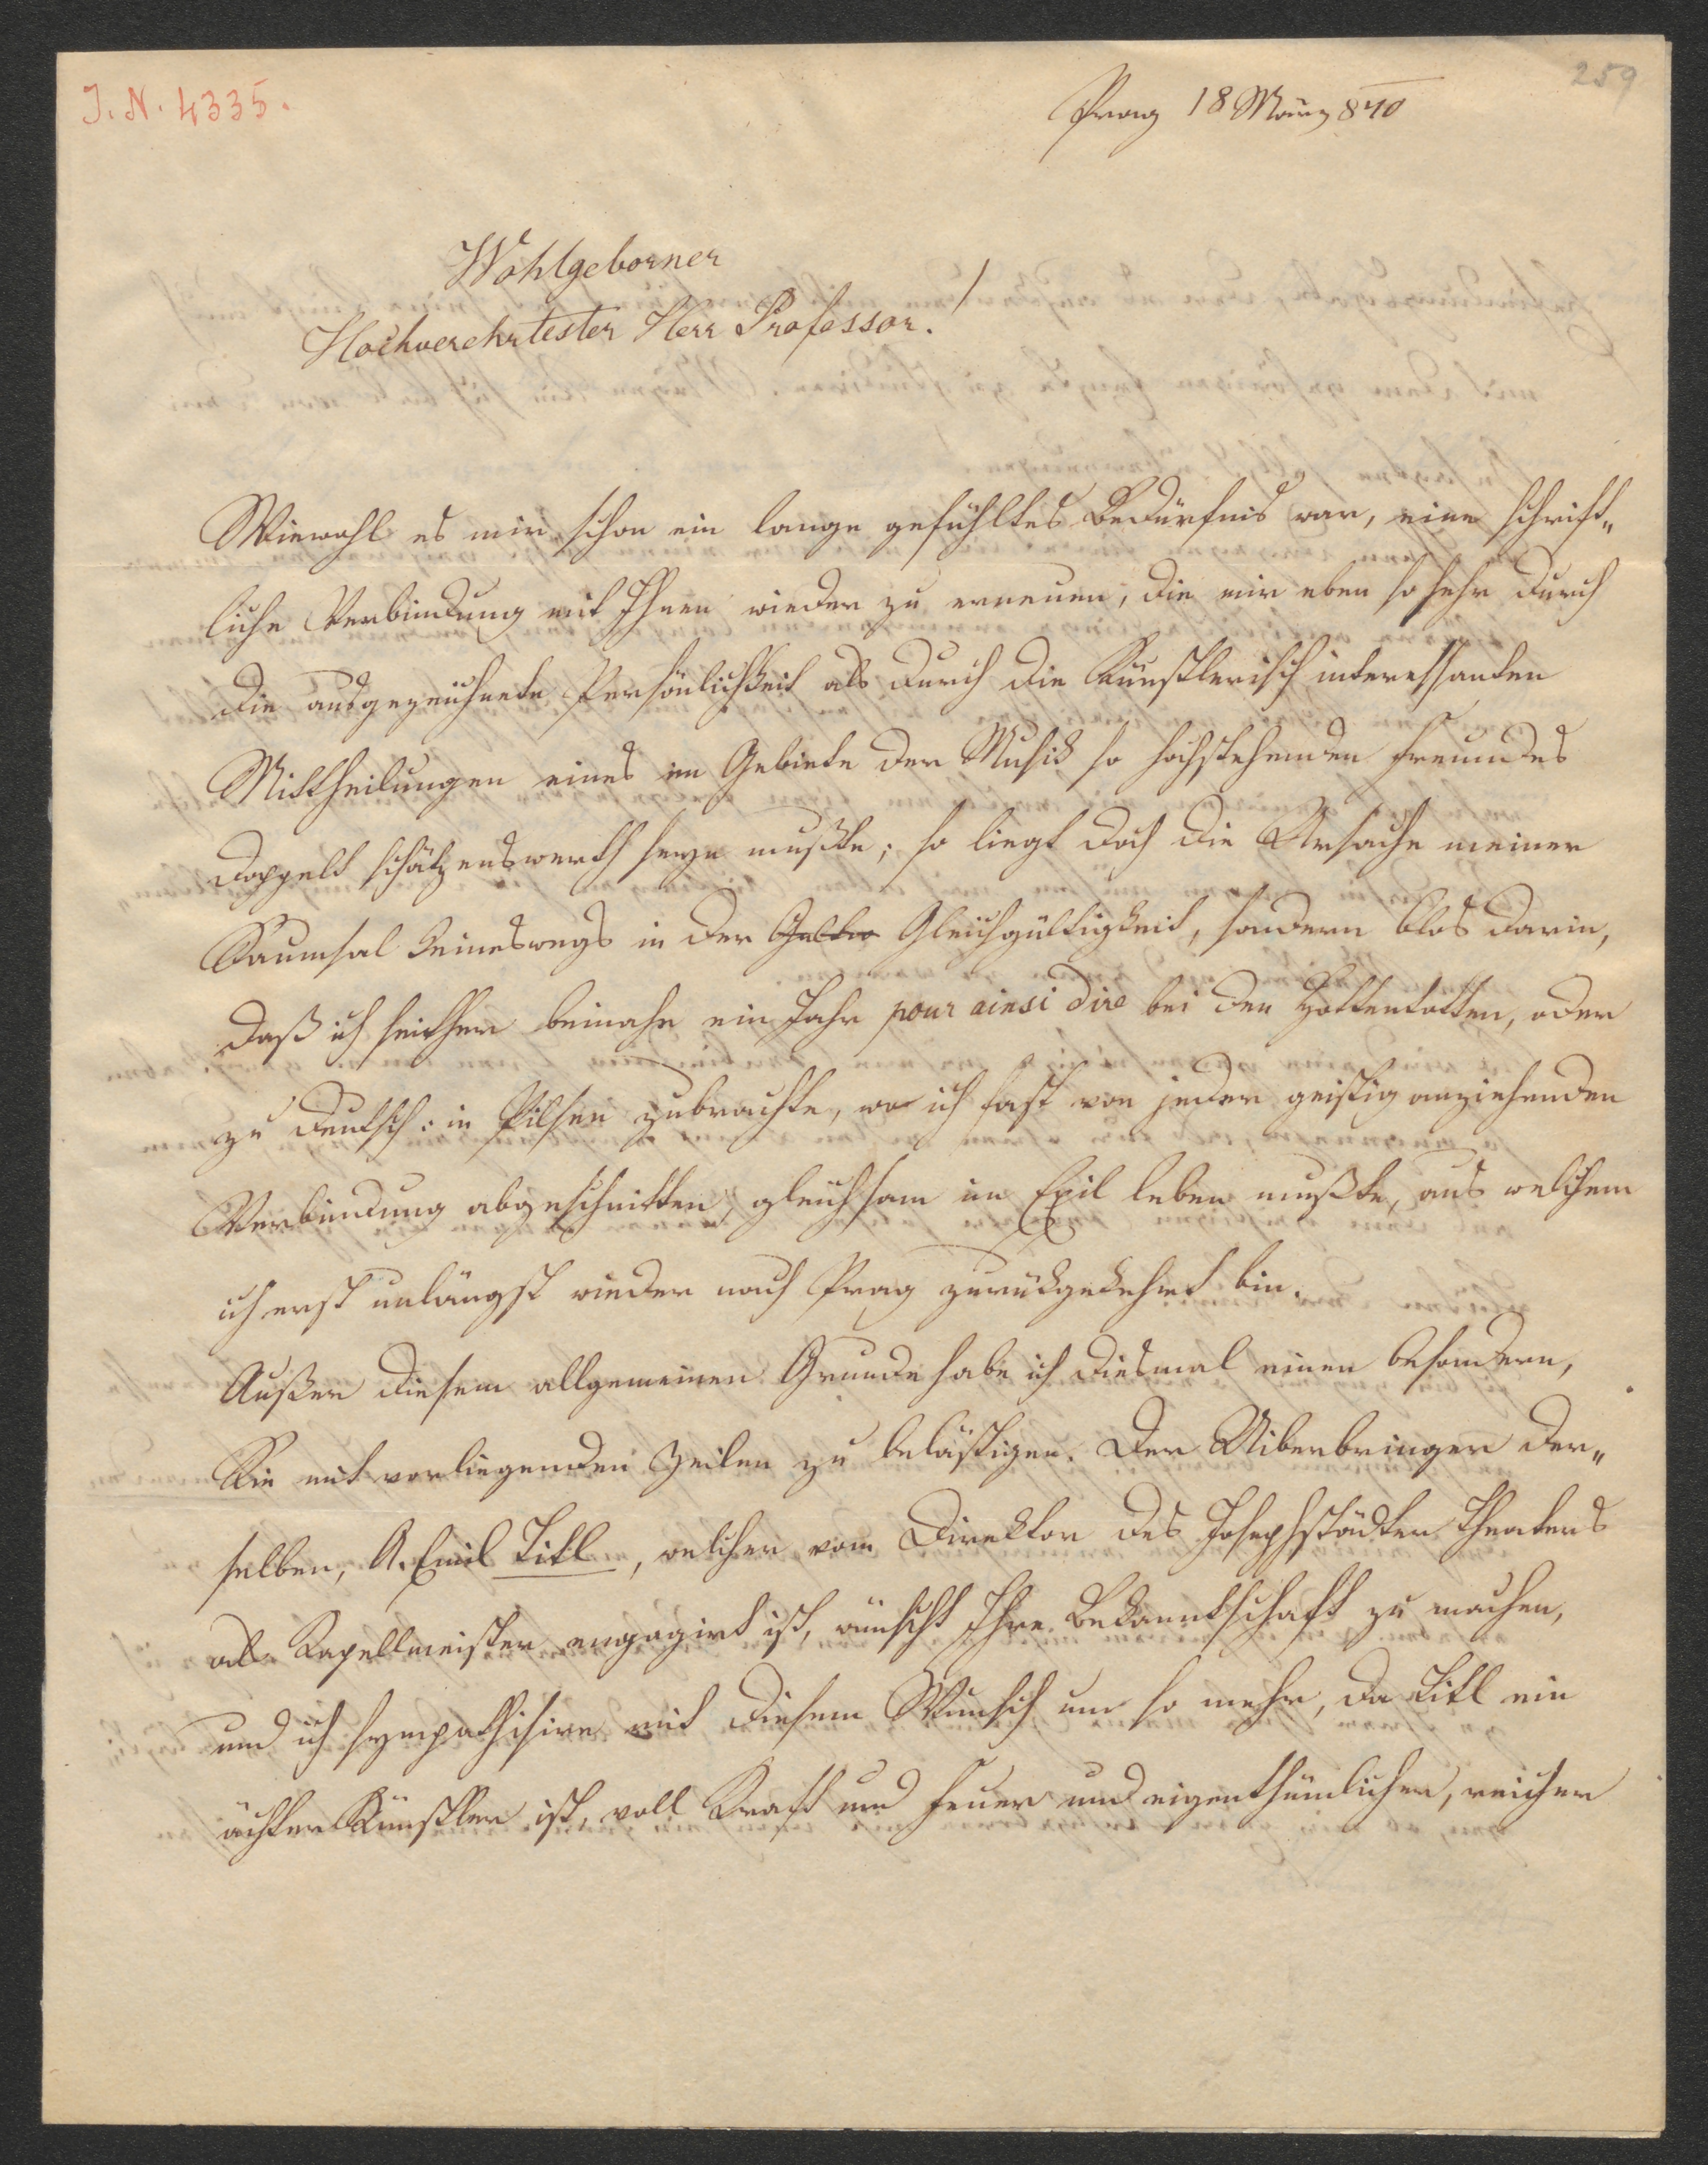 259
J. N. 4335.
Prag 18 März 840
Wohlgeborner
Hochverehrtester Herr Professor!
Wiewohl es mir schon ein lange gefühltes Bedürfnis war, eine schrift„
liche Verbindung mit Ihnen wieder zu erneuen, die mir eben so sehr durch
die ausgezeichnete Persönlichkeit als durch die künstlerisch interessanten
Mittheilungen eines im Gebiete der Musik so hochstehenden Freundes
doppelt schätzenswerth seyn mußte; so liegt doch die Ursache meiner
Saumsal keineswegs in der Gleichgültigkeit, sondern blos darin,
daß ich seither beinahe ein Jahr pour ainsi dire bei den Hottentotten, oder
zu deutsch: in Pilsen zubrachte, wo ich fast von jeder geistig anziehenden
Verbindung abgeschnitten, gleichsam im Exil leben mußte, aus welchem
ich erst unlängst wieder nach Prag zurückgekehrt bin.
Außer diesem allgemeinen Grunde habe ich diesmal einen besondern,
Sie mit vorliegenden Zeilen zu belästigen. Der Uiberbringer der„
selben, A. Emil Titl, welcher vom Direktor des Josephstädter Theaters
als Kapellmeister engagirt ist, wünscht Ihre Bekanntschaft zu machen,
und ich sympathisire mit diesem Wunsch um so mehr, da Titl ein
ächter Künstler ist, voll Kraft und Feuer und eigenthümlicher, reicher